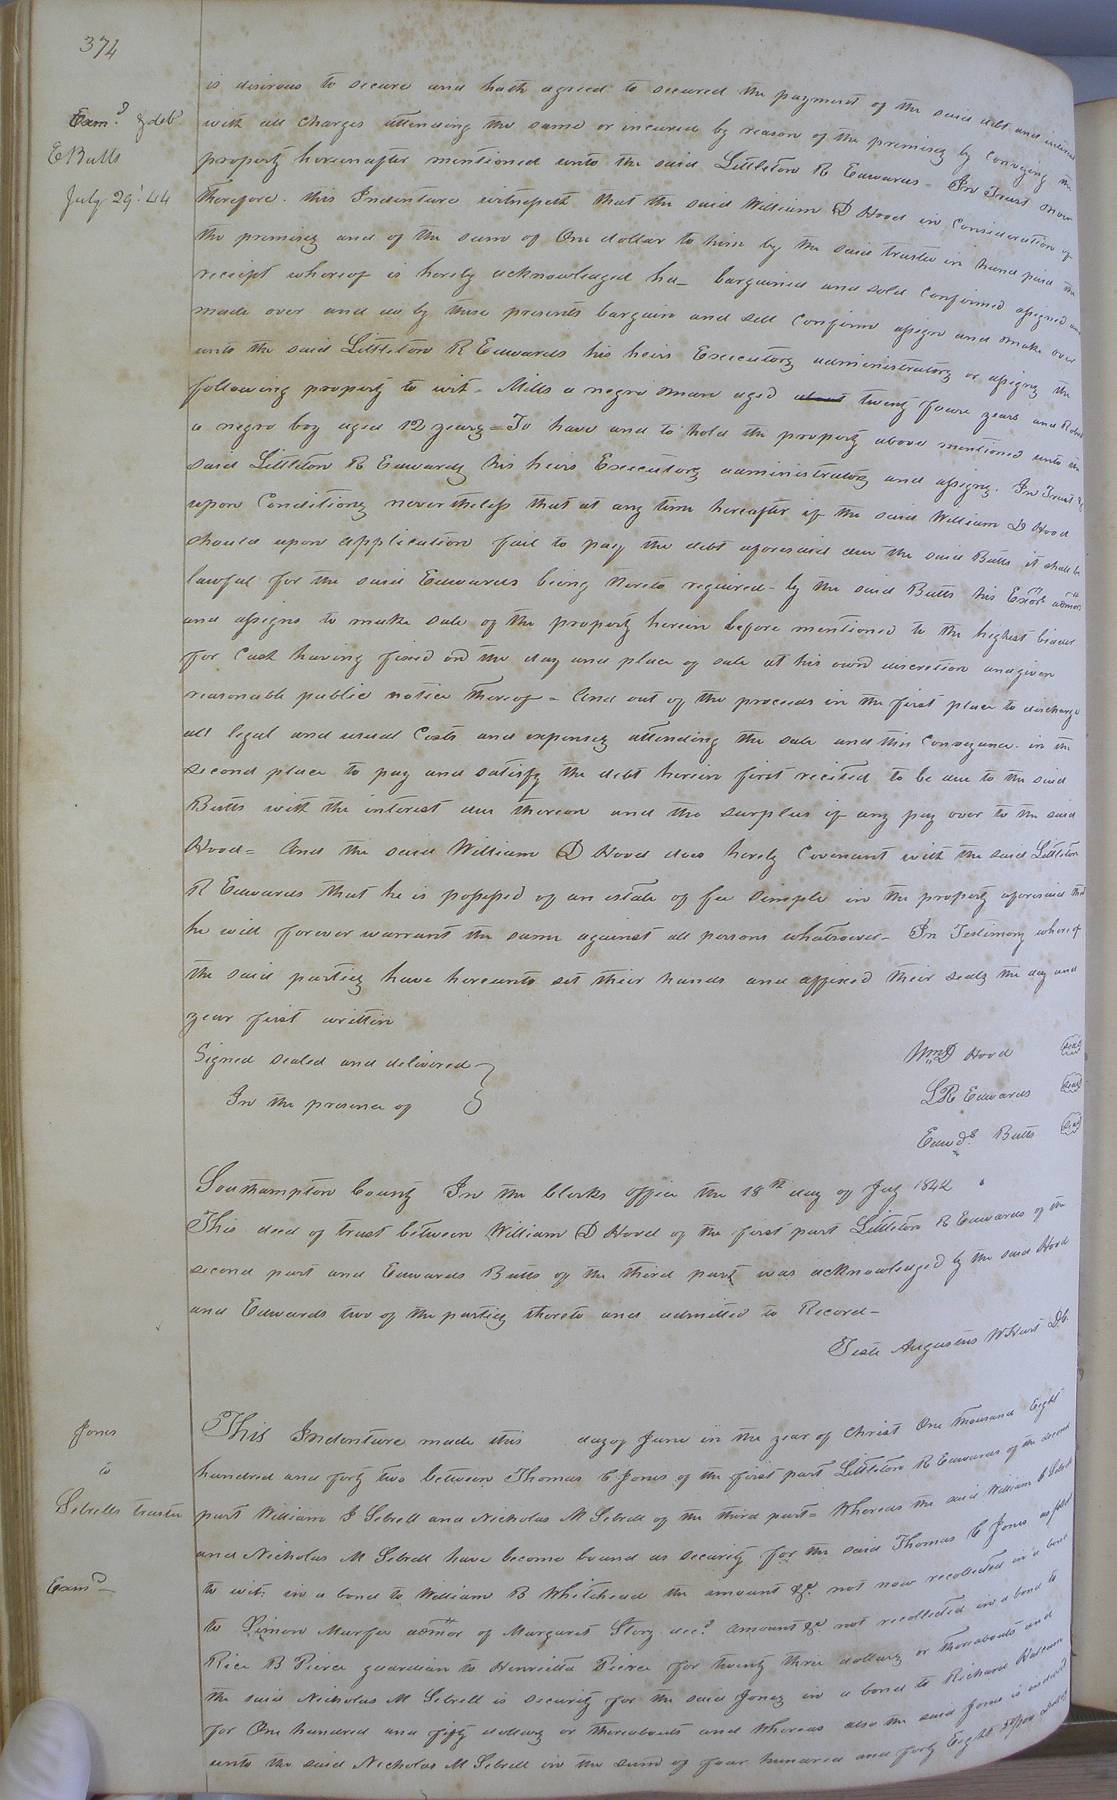 374
is desirous to secure and hath agreed to secured the payment of the said debt and interest
Exmd. & deld
with all charges attending the same or incured by reason of the premises by Conveying the
E Butts
property hereinafter mentioned unto the said Littleton R Edwards - In Trust Now
July 29th. 44
therefore. this Indenture witnesseth that the said William D Hood in Consideration of
the premises and of the sum of One dollar to him by the said trustee in hand paid the
receipt whereof is hereby acknowledged ha_ bargained and sold Confirmed assigned and
made over and do by these presents bargain and sell Confirm assign and make over
unto the said Littleton R Edwards his heirs Executors administrators or assigns the
following property to wit - Mills a negro man aged about twenty foure years and Robert
a negro boy aged 12 years = To have and to hold the property above mentioned unto the
said Littleton R Edwards his heirs Executors administrators and assigns. In Trust &
upon Conditions nevertheless that at any time hereafter if the said William D Hood
should upon application fail to pay the debt aforesaid due the said Butts it shall be
lawful for the said Edwards being thereto required - by the said Butts his Exors admors
and assigns to make sale of the property herein before mentioned to the highest bider
for Cash having fixed on the day and place of sale at his own discretion and given
reasonable public notice thereof - And out of the proceeds in the first place to discharge
all legal and usual Costs and expenses attending the sale and this Conveyance - in the
second place to pay and satisfy the debt herein first recited to be due to the said
Butts with the interest due thereon and the surplus if any pay over to the said
Hood = And the said William D Hood does hereby Covenant with the said Littleton
R Edwards that he is possessed of an estate of fee simple in the property aforesaid that
he will forever warrant the same against all persons whatsoever - In Testimony whereof
the said parties have hereunto set their hands and affixed their seals the day and
year first written
Signed sealed and delivered
In the presence of
Wm D Hood seal
LR Edwards seal
Edwds Butts seal
Southampton County In the Clerks office the 18th day of July 1842
This deed of trust between William D Hood of the first part Littleton R Edwards of the
second part and Edwards Butts of the third party was acknowledged by the said Hood
and Edwards two of the parties thereto and admitted to Record -
Teste Augustus W Hart DC.
Jones
to
Sebrells trustee
Exmd -
This Indenture made this day of June in the year of Christ One thousand Eight
hundred and forty two between Thomas C Jones of the first part Littleton R Edwards of the second
part William J Sebrell and Nicholas M Sebrell of the third part = Whereas the said William J Sebrell
and Nicholas M Sebrell have become bound as security for the said Thomas C Jones as
to wit. in a bond to William B Whitehead the amount &c. not now recollected in a bond
to Simon Murfee admor of Margaret Story decd. Amount &c not recollected in a bond to
Rice B Pierce guardian to Henrietta Pierce for twenty three dollars or thereabouts and
the said Nicholas M Sebrell is security for the said Jones in a bond to Richard
for One hundred and fifty dollars or thereabouts and whereas also the said Jones is indebted
unto the said Nicholas M Sebrell in the sum of four hundred and forty Eight